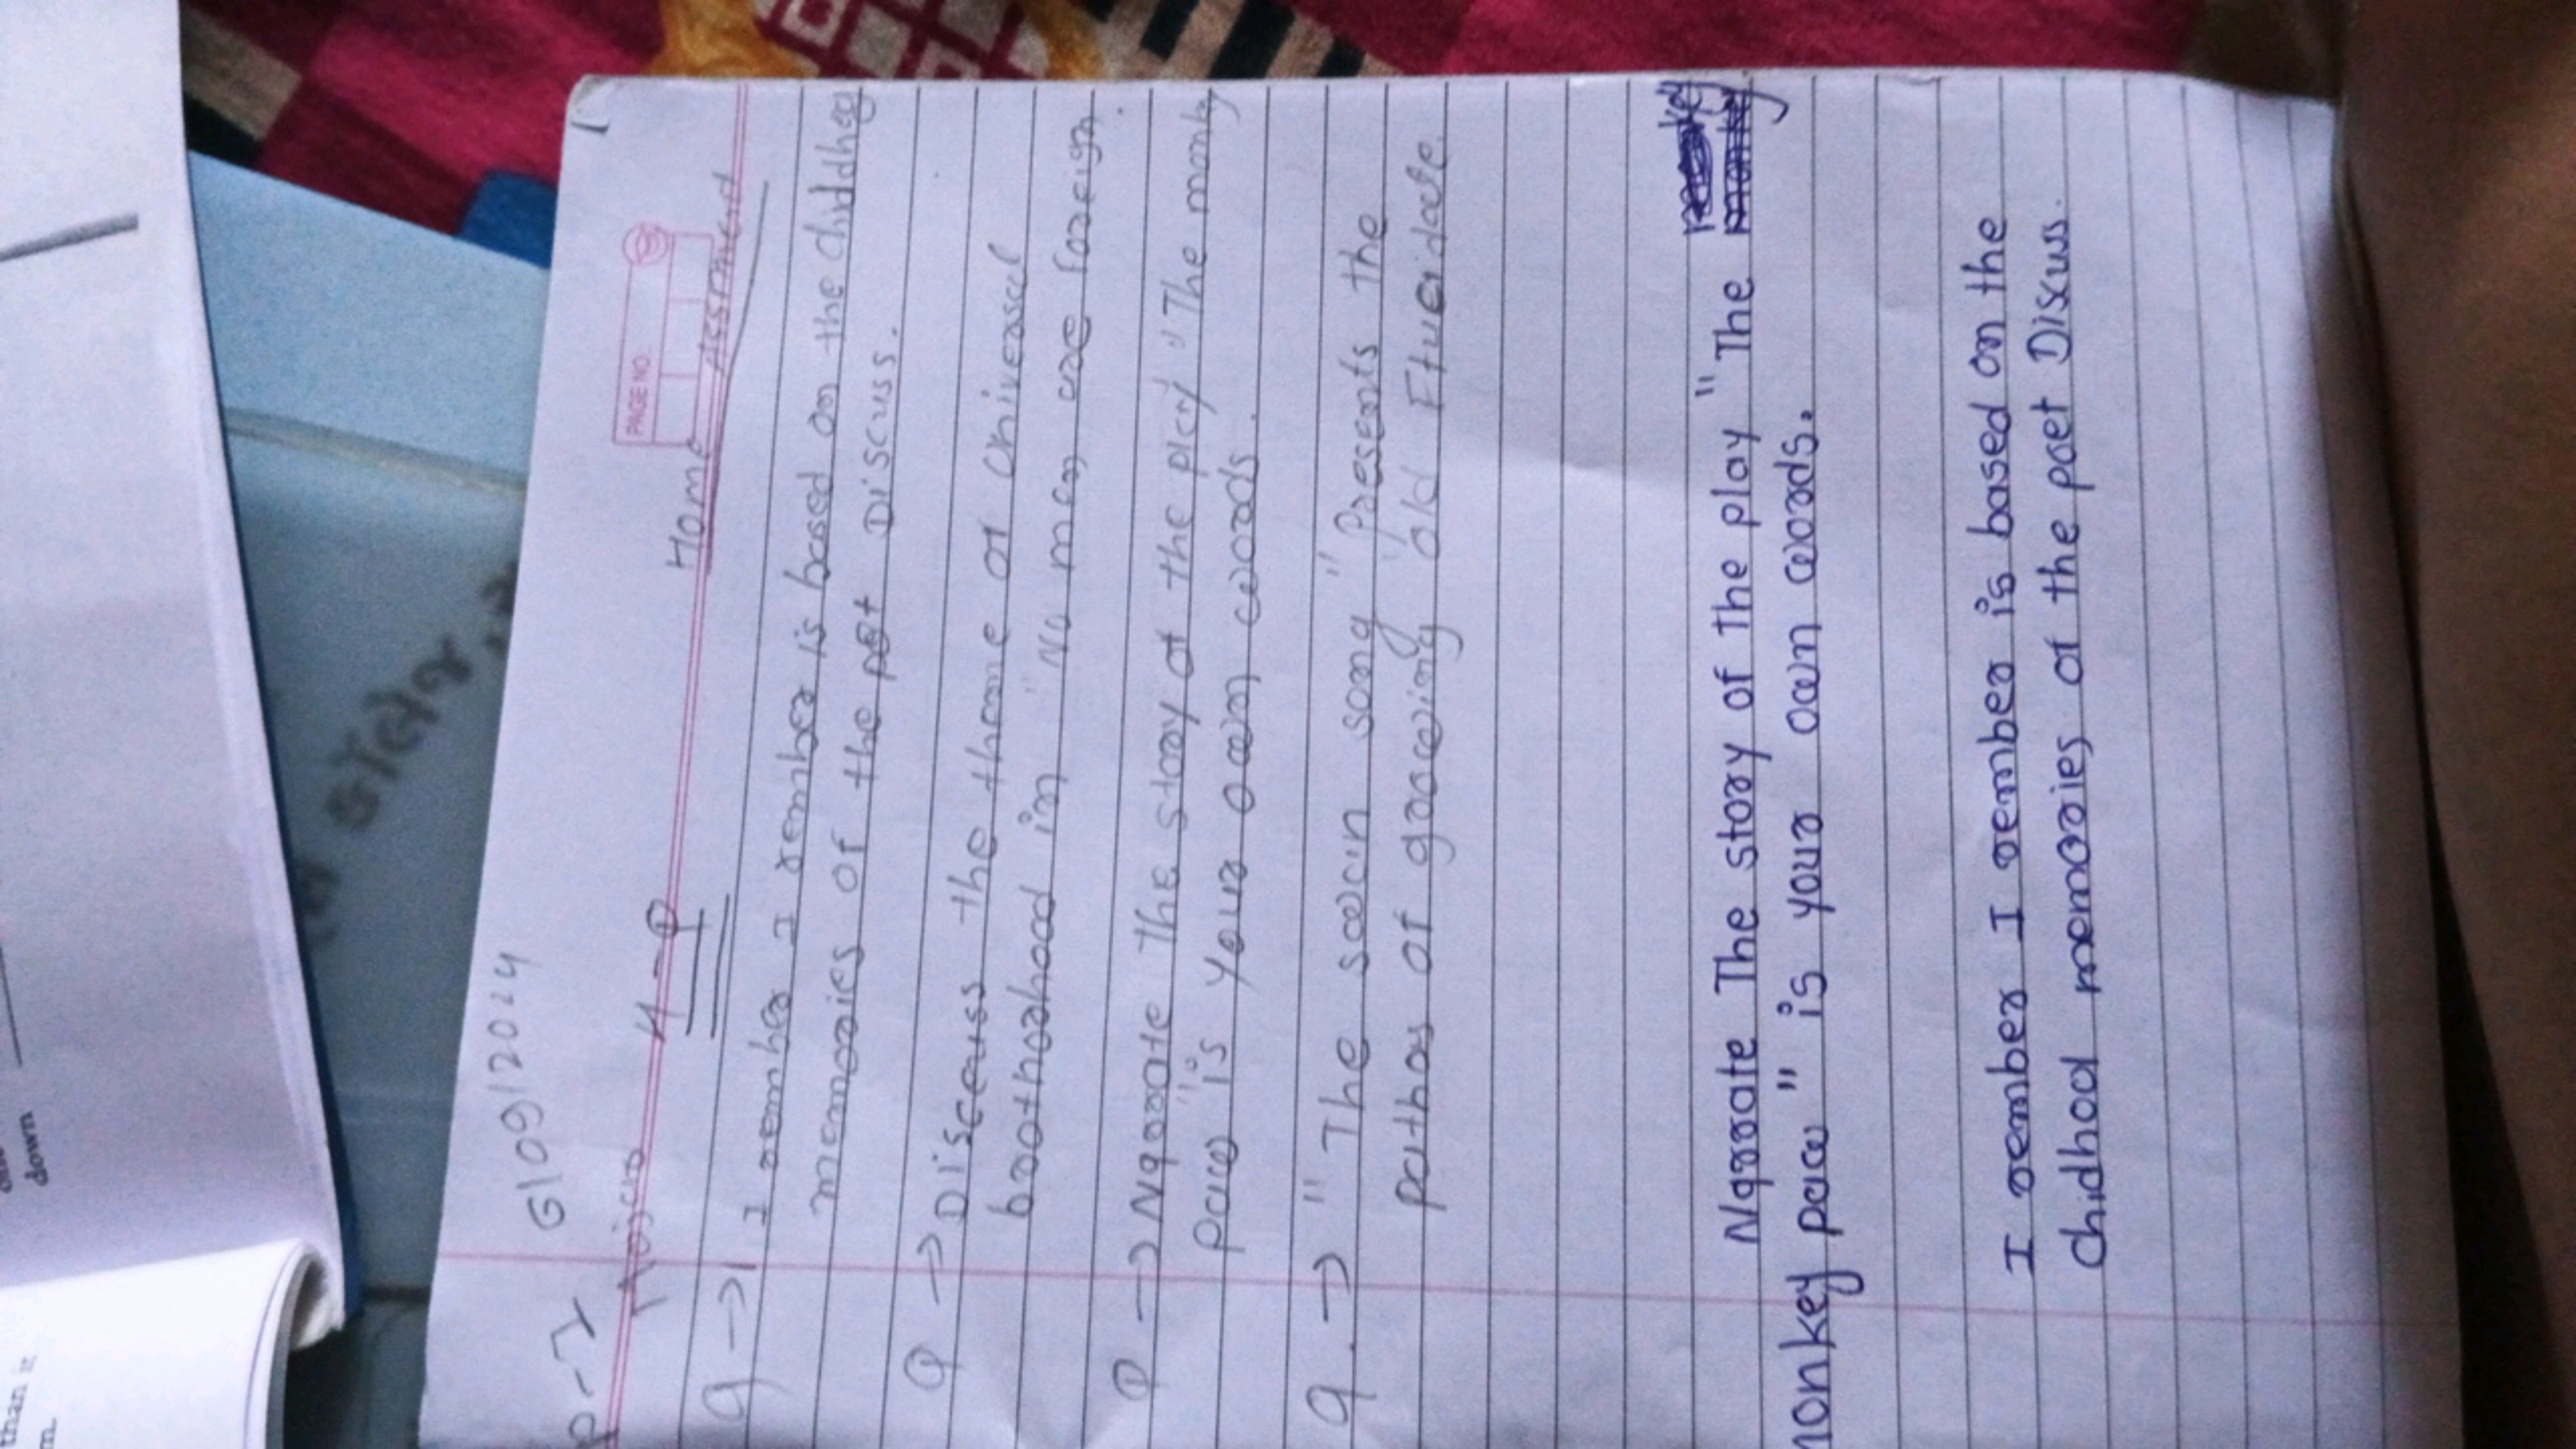 6/09/2024
PAGE NO
Home Assement
I rember I rember is based on the chiddhey
memories of the pet Discuss.
Q → Disccuss the theme of Univeral
brotherhood in "No men are foreign.
Q → Narrate The story of the play "The monky
paw" is your own words.
Q. → "The swan song" Presents the
pathos of growing old Eluci date.
Narrate The story of the play "The
monkey paw" is your own words.
I rember I rember is based on the
Chidhod memories of the poet Discus.
down
than it
m.